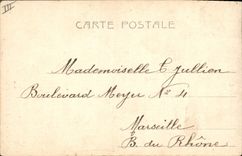 III
CARTE POSTALE
Mademoiselle C Jullien
Boulevard Meyer No 4
Marseille
B. du Rhône